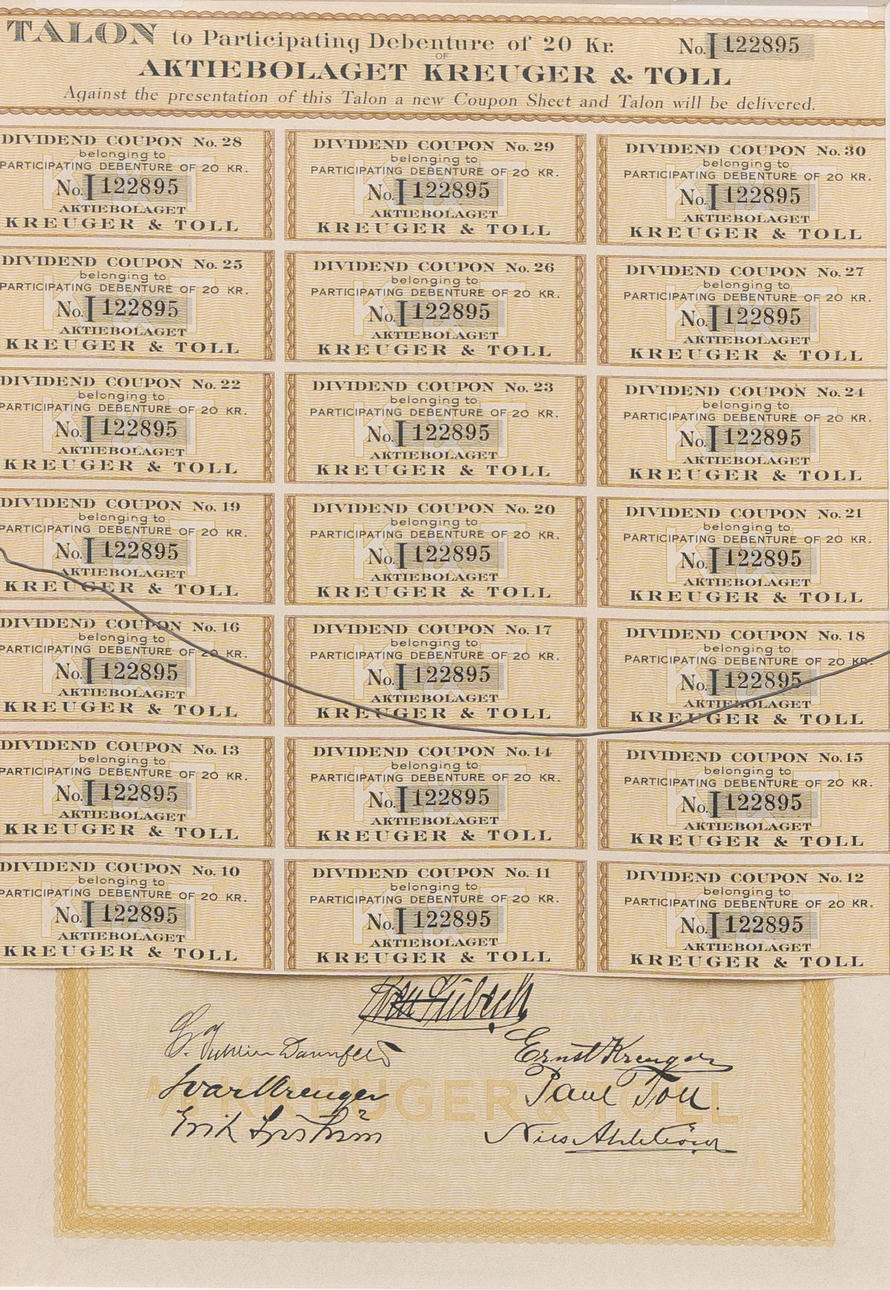 TALON to Participating Debenture of 20 Kr. No. I 122895
OF
AKTIEBOLAGET KREUGER & TOLL
Against the presentation of this Talon a new Coupon Sheet and Talon will be delivered.
DIVIDEND COUPON No. 28
belonging to
PARTICIPATING DEBENTURE OF 20 KR.
No. I 122895
AKTIEBOLAGET
KREUGER & TOLL
DIVIDEND COUPON No. 29
belonging to
PARTICIPATING DEBENTURE OF 20 KR.
No. I 122895
AKTIEBOLAGET
KREUGER & TOLL
DIVIDEND COUPON No. 30
belonging to
PARTICIPATING DEBENTURE OF 20 KR.
No. I 122895
AKTIEBOLAGET
KREUGER & TOLL
DIVIDEND COUPON No. 25
belonging to
PARTICIPATING DEBENTURE OF 20 KR.
No. I 122895
AKTIEBOLAGET
KREUGER & TOLL
DIVIDEND COUPON No. 26
belonging to
PARTICIPATING DEBENTURE OF 20 KR.
No. I 122895
AKTIEBOLAGET
KREUGER & TOLL
DIVIDEND COUPON No. 27
belonging to
PARTICIPATING DEBENTURE OF 20 KR.
No. I 122895
AKTIEBOLAGET
KREUGER & TOLL
DIVIDEND COUPON No. 22
belonging to
PARTICIPATING DEBENTURE OF 20 KR.
No. I 122895
AKTIEBOLAGET
KREUGER & TOLL
DIVIDEND COUPON No. 23
belonging to
PARTICIPATING DEBENTURE OF 20 KR.
No. I 122895
AKTIEBOLAGET
KREUGER & TOLL
DIVIDEND COUPON No. 24
belonging to
PARTICIPATING DEBENTURE OF 20 KR.
No. I 122895
AKTIEBOLAGET
KREUGER & TOLL
DIVIDEND COUPON No. 19
belonging to
PARTICIPATING DEBENTURE OF 20 KR.
No. I 122895
AKTIEBOLAGET
KREUGER & TOLL
DIVIDEND COUPON No. 20
belonging to
PARTICIPATING DEBENTURE OF 20 KR.
No. I 122895
AKTIEBOLAGET
KREUGER & TOLL
DIVIDEND COUPON No. 21
belonging to
PARTICIPATING DEBENTURE OF 20 KR.
No. I 122895
AKTIEBOLAGET
KREUGER & TOLL
DIVIDEND COUPON No. 16
belonging to
PARTICIPATING DEBENTURE OF 20 KR.
No. I 122895
AKTIEBOLAGET
KREUGER & TOLL
DIVIDEND COUPON No. 17
belonging to
PARTICIPATING DEBENTURE OF 20 KR.
No. I 122895
AKTIEBOLAGET
KREUGER & TOLL
DIVIDEND COUPON No. 18
belonging to
PARTICIPATING DEBENTURE OF 20 KR.
No. I 122895
AKTIEBOLAGET
KREUGER & TOLL
DIVIDEND COUPON No. 13
belonging to
PARTICIPATING DEBENTURE OF 20 KR.
No. I 122895
AKTIEBOLAGET
KREUGER & TOLL
DIVIDEND COUPON No. 14
belonging to
PARTICIPATING DEBENTURE OF 20 KR.
No. I 122895
AKTIEBOLAGET
KREUGER & TOLL
DIVIDEND COUPON No. 15
belonging to
PARTICIPATING DEBENTURE OF 20 KR.
No. I 122895
AKTIEBOLAGET
KREUGER & TOLL
DIVIDEND COUPON No. 10
belonging to
PARTICIPATING DEBENTURE OF 20 KR.
No. I 122895
AKTIEBOLAGET
KREUGER & TOLL
DIVIDEND COUPON No. 11
belonging to
PARTICIPATING DEBENTURE OF 20 KR.
No. I 122895
AKTIEBOLAGET
KREUGER & TOLL
DIVIDEND COUPON No. 12
belonging to
PARTICIPATING DEBENTURE OF 20 KR.
No. I 122895
AKTIEBOLAGET
KREUGER & TOLL
Ernst Kreuger
Ivar Kreuger
Paul Toll.
KREUGER & TOLL
Nils Ahlström